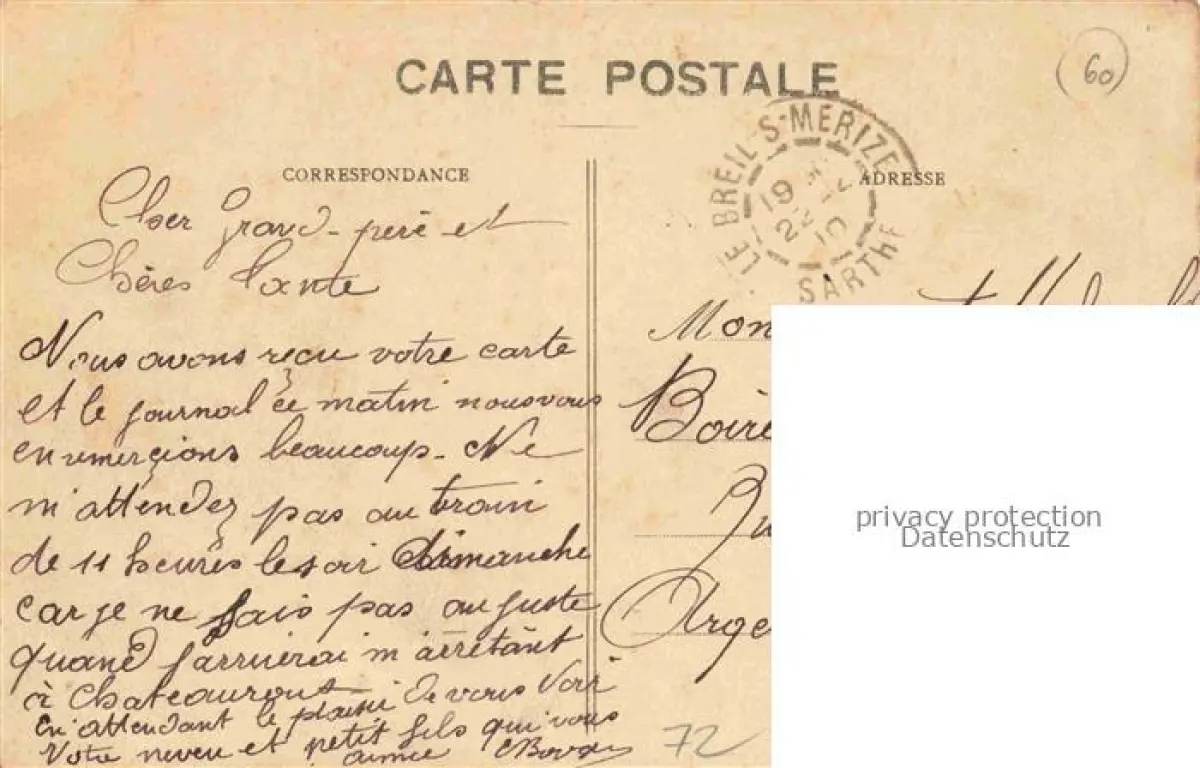 CARTE POSTALE
60
LE BREIL-S-MERIZE
19
22 10
SARTHE
CORRESPONDANCE
ADRESSE
Cher Grand-père et
Chères Tante
Nous avons reçu votre carte
et le journal ce matin nous vous
en remerçions beaucoup. Ne
m'attendez pas au train
de 11 heures le soir Dimanche
car je ne sais pas au juste
quand j'arriverai m'arrêtant
à Chateauroux
en attendant le plaisir de vous Voir
Votre neveu et petit fils qui vous
aime
Mon
Boire
Arge
72
privacy protection
Datenschutz